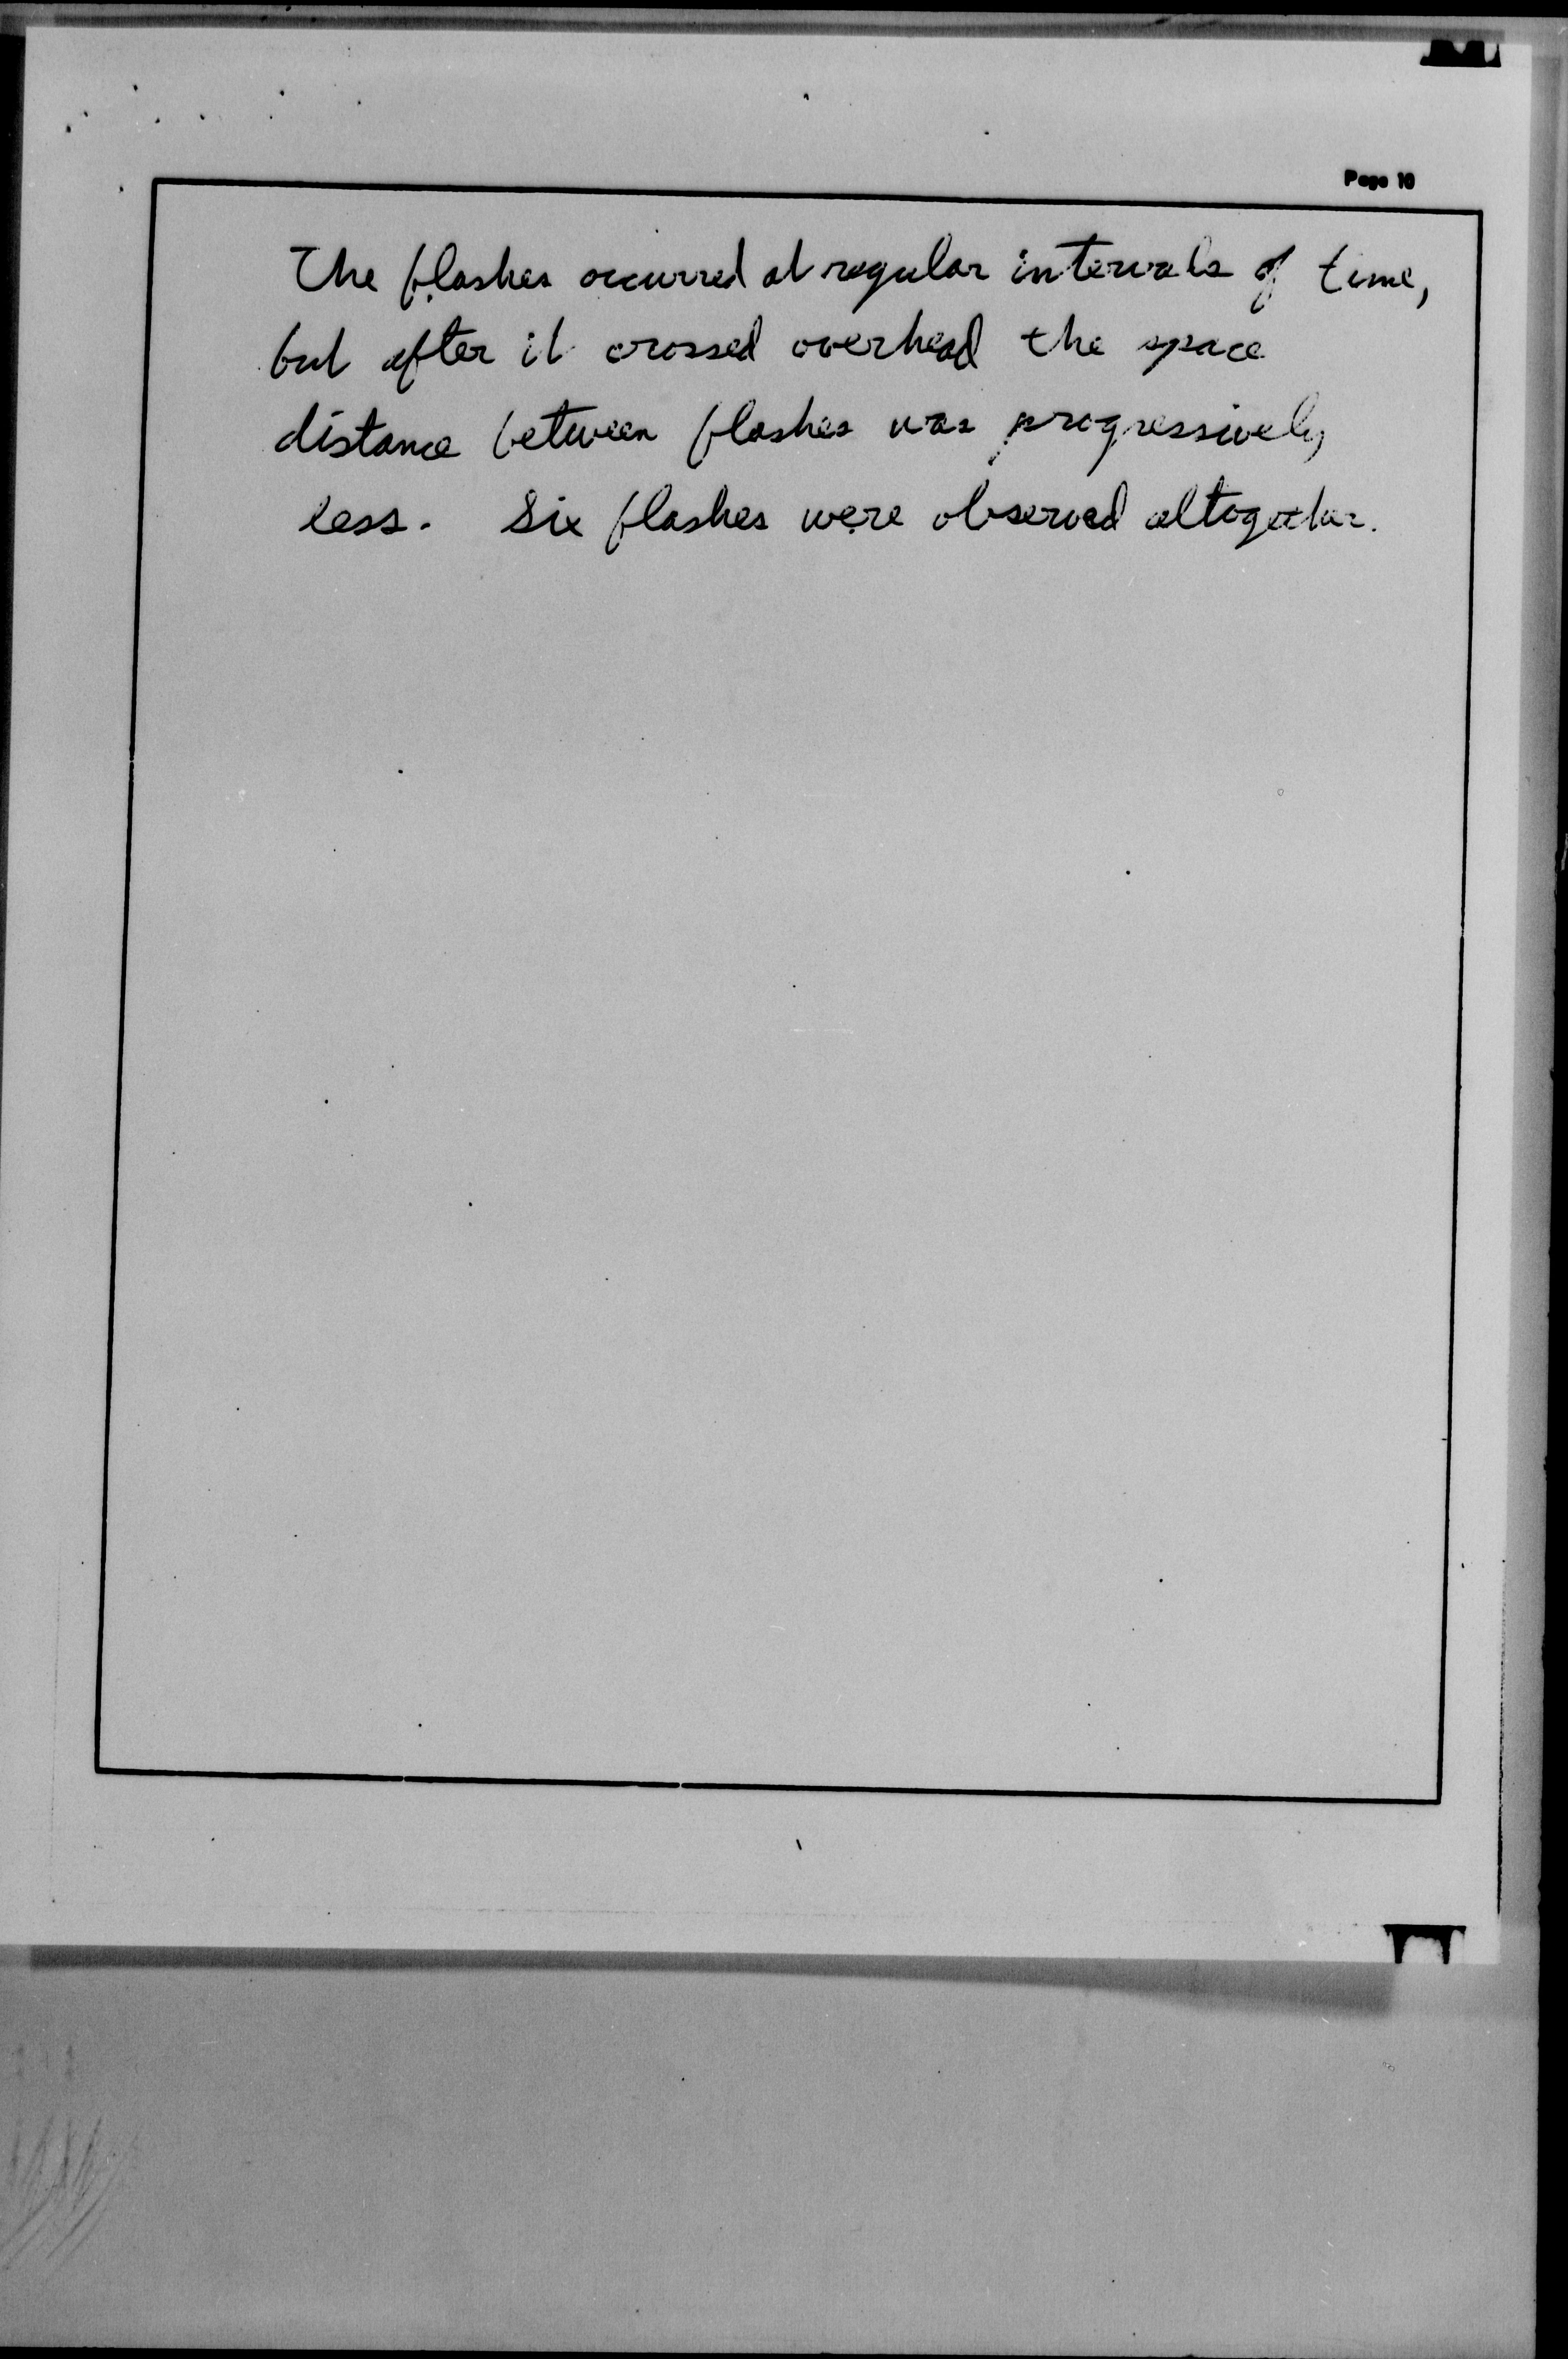 Page 10
The flashes occurred at regular intervals of time,
but after it crossed overhead the space
distance between flashes was progressively
less. Six flashes were observed altogether.